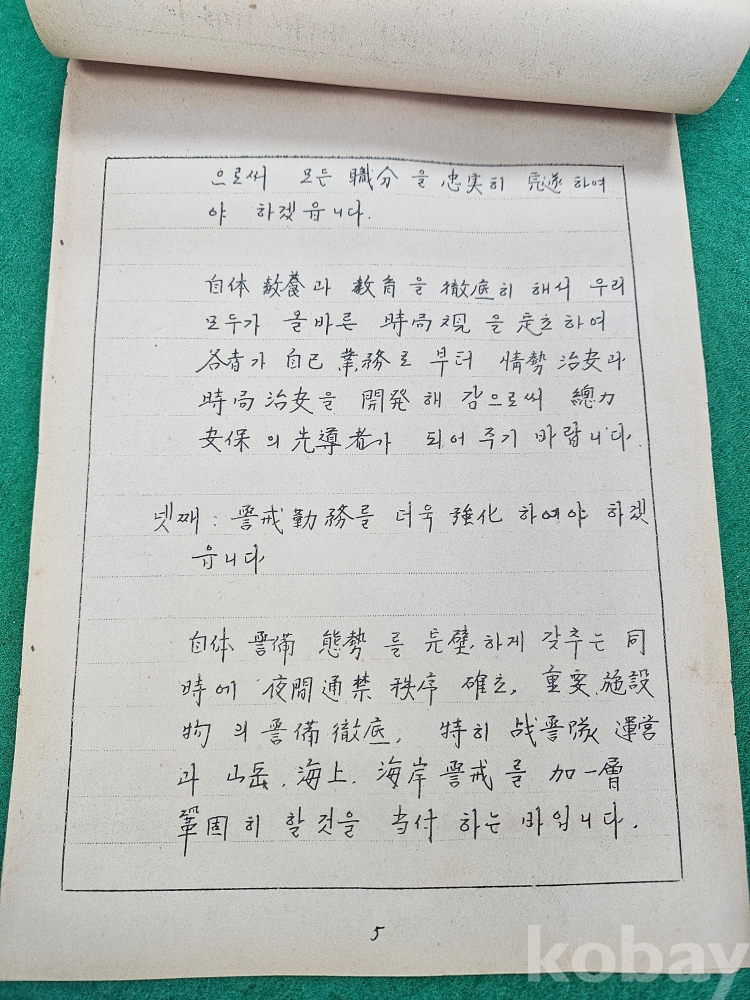 으로써 모든 職分을 忠実히 完遂하여
야 하겠읍니다.
自体 敎養과 敎育을 徹底히 해서 우리
모두가 올바른 時局観을 定立하여
各者가 自己 業務로 부터 情勢治安과
時局治安을 開発해 감으로써 總力
安保의 先導者가 되어 주기 바랍니다.
넷째 : 警戒勤務를 더욱 強化하여야 하겠
읍니다
自体 警備 態勢를 完璧하게 갖추는 同
時에 夜間通禁秩序 確立, 重要施設
物의 警備徹底, 特히 战警隊 運営
과 山岳.海上.海岸警戒를 加一層
鞏固히 할것을 当付 하는 바입니다.
5
kobay